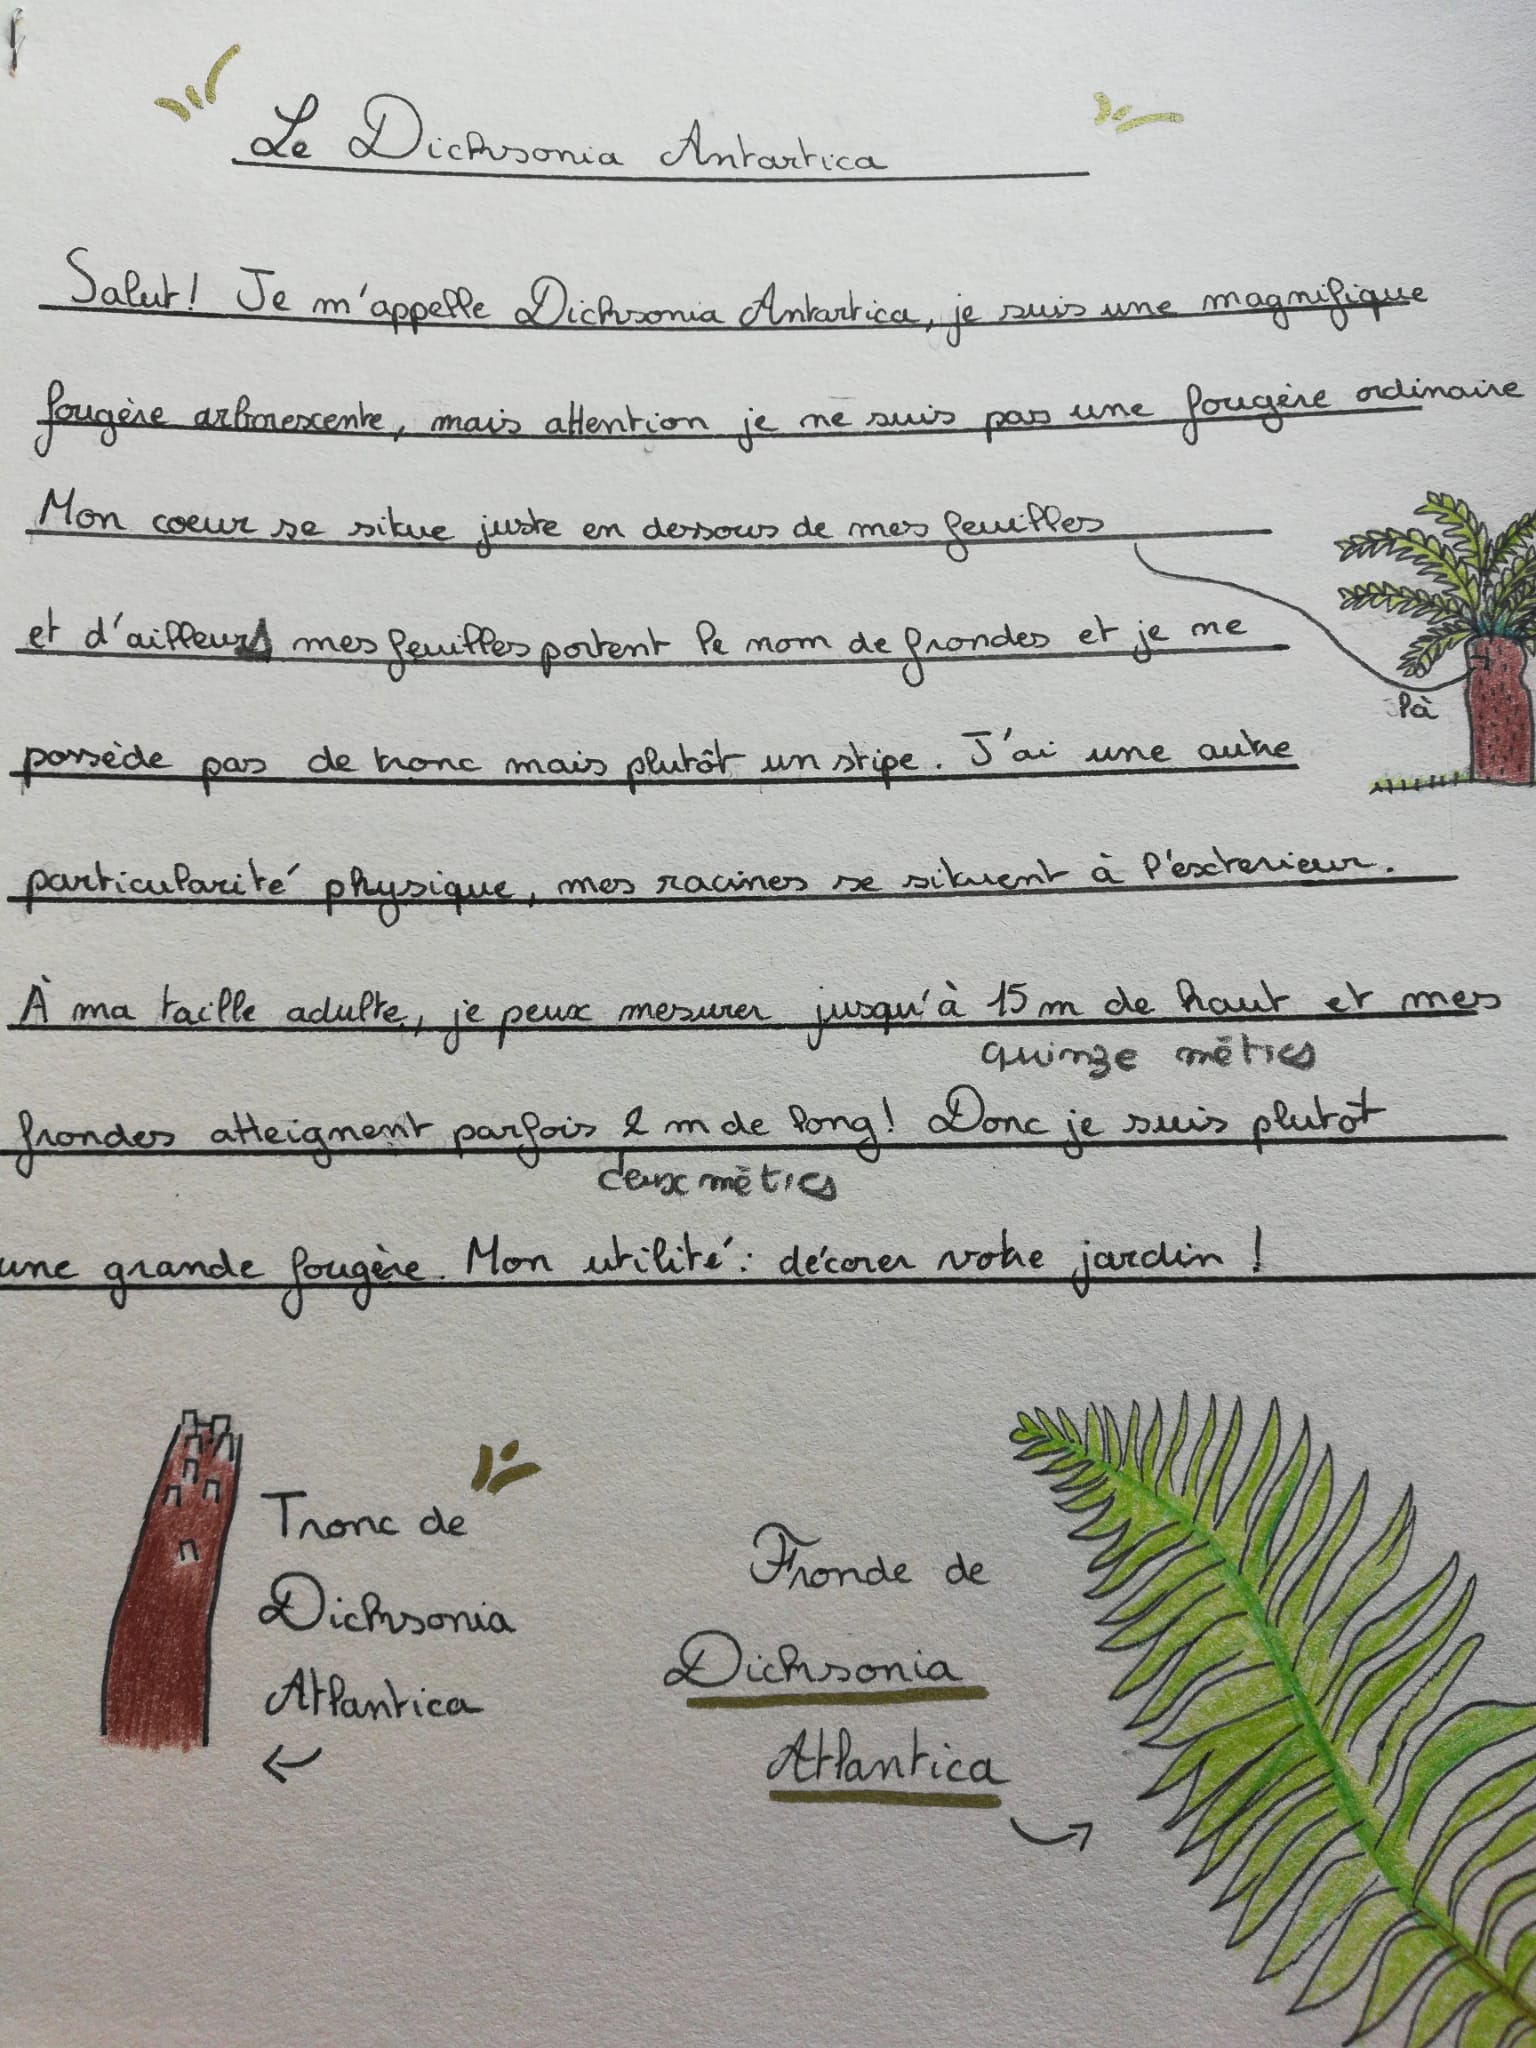 Le Dicksonia Antartica
Salut! Je m'appelle Dicksonia Antartica, je suis une magnifique
fougère arborescente, mais attention je ne suis pas une fougère ordinaire
Mon coeur se situe juste en dessous de mes feuilles
et d'ailleurs mes feuilles portent le nom de frondes et je ne
là
possède pas de tronc mais plutôt un stipe. J'ai une autre
particularité physique, mes racines se situent à l'exterieur.
À ma taille adulte, je peux mesurer jusqu'à 15 m de haut et mes
quinze mètres
frondes atteignent parfois 2 m de long! Donc je suis plutôt
deux mètres
une grande fougère. Mon utilité: décorer votre jardin!
Tronc de
Dicksonia
Atlantica
Fronde de
Dicksonia
Atlantica